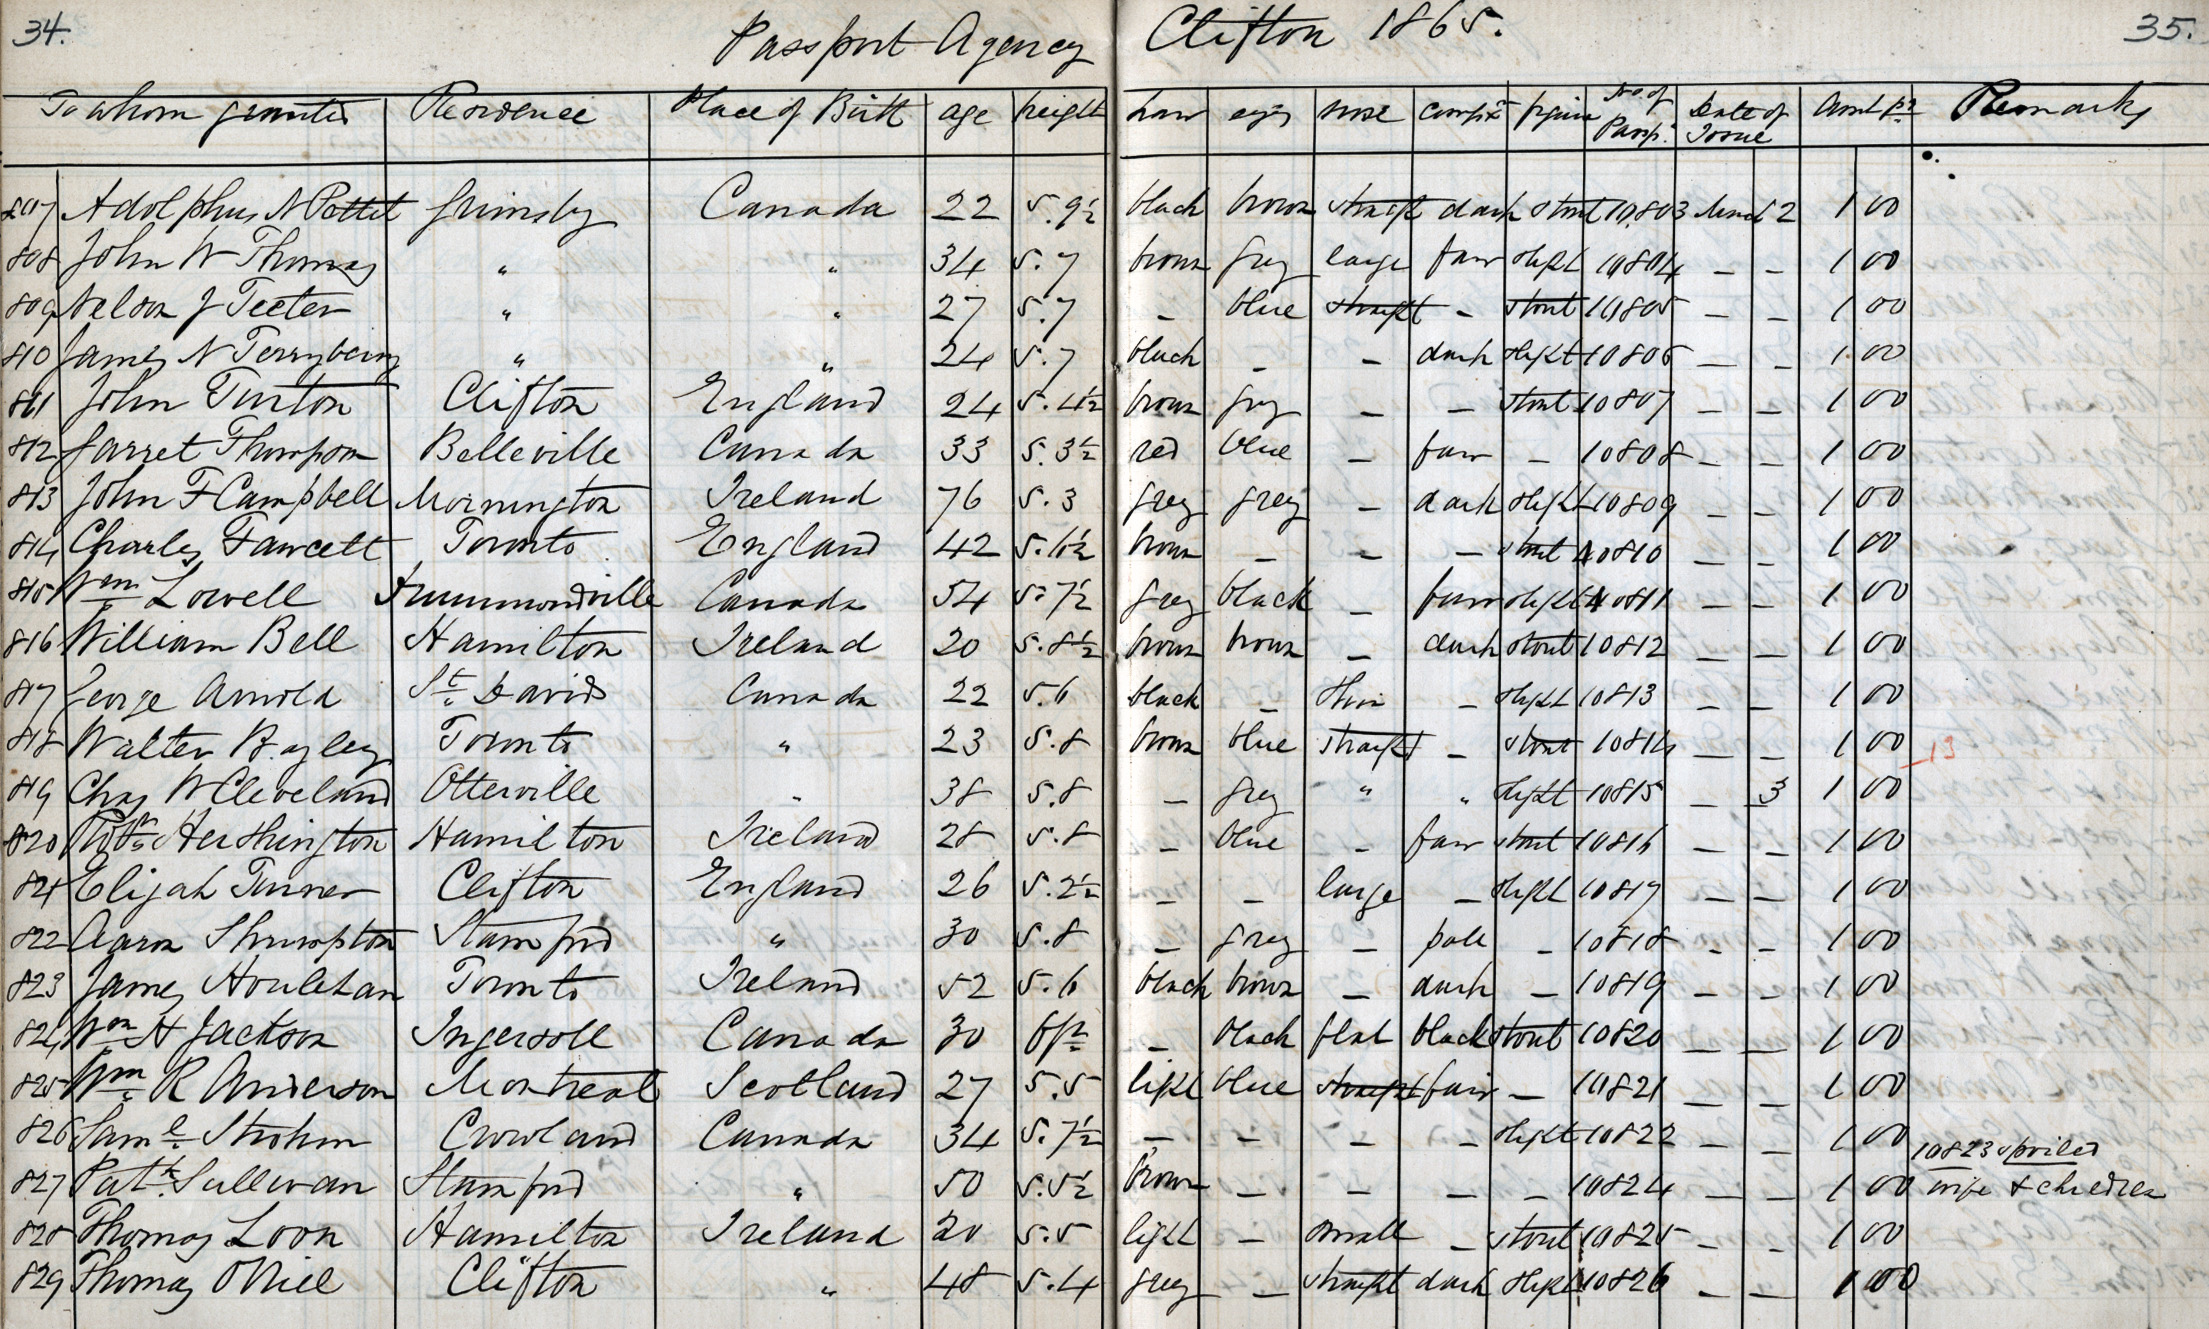 34. Passport Agency Clifton 1865. 35.
To whom granted Residence Place of Birth age height hair eyes nose compx figure No. of Passp. Date of Issue Amt pd Remarks
807 Adolphus N Pettit Grimsby Canada 22 5.9½ black brown straight dark stout 10803 March 2 1 00
808 John W Thomas " " 34 5.7 brown grey large fair slight 10804 — — 1 00
809 Nelson J Teeter " " 27 5.7 — blue straight — stout 10805 — — 1 00
810 James N Terryberry " " 24 5.7 black — — dark slight 10806 — — 1 00
811 John Turton Clifton England 24 5.4½ brown grey — — stout 10807 — — 1 00
812 Garret Thompson Belleville Canada 33 5.3½ red blue — fair — 10808 — — 1 00
813 John F Campbell Mornington Ireland 76 5.3 grey grey — dark slight 10809 — — 1 00
814 Charles Fawcett Toronto England 42 5.6½ brown — — — stout 10810 — — 1 00
815 Wm Lowell Drummondville Canada 54 5.7½ grey black — fair slight 10811 — — 1 00
816 William Bell Hamilton Ireland 20 5.8½ brown brown — dark stout 10812 — — 1 00
817 George Arnold St. Davids Canada 22 5.6 black — thin — slight 10813 — — 1 00
818 Walter Bayley Toronto " 23 5.8 brown blue straight — stout 10814 — — 1 00 13
819 Chas W Cleveland Otterville " 38 5.8 — grey " " slight 10815 — 3 1 00
820 Robt. Hethington Hamilton Ireland 28 5.8 — blue — fair stout 10816 — — 1 00
821 Elijah Turner Clifton England 26 5.2½ — — large — slight 10817 — — 1 00
822 Aaron Shrumpton Stamford " 30 5.8 — grey — pale — 10818 — — 1 00
823 James Houlehan Toronto Ireland 52 5.6 black brown — dark — 10819 — — 1 00
824 Wm H Jackson Ingersoll Canada 30 6ft — black flat black stout 10820 — — 1 00
825 Wm R Anderson Montreal Scotland 27 5.5 light blue straight fair — 10821 — — 1 00
826 Saml Strohm Crowland Canada 34 5.7½ — — — — slight 10822 — — 1 00 10823 spoiled
827 Patk. Sullivan Stamford " 50 5.5½ brown — — — — 10824 — — 1 00 wife & children
828 Thomas Loon Hamilton Ireland 20 5.5 light — small — stout 10825 — — 1 00
829 Thomas ONiel Clifton " 48 5.4 grey — straight dark slight 10826 — — 1 00